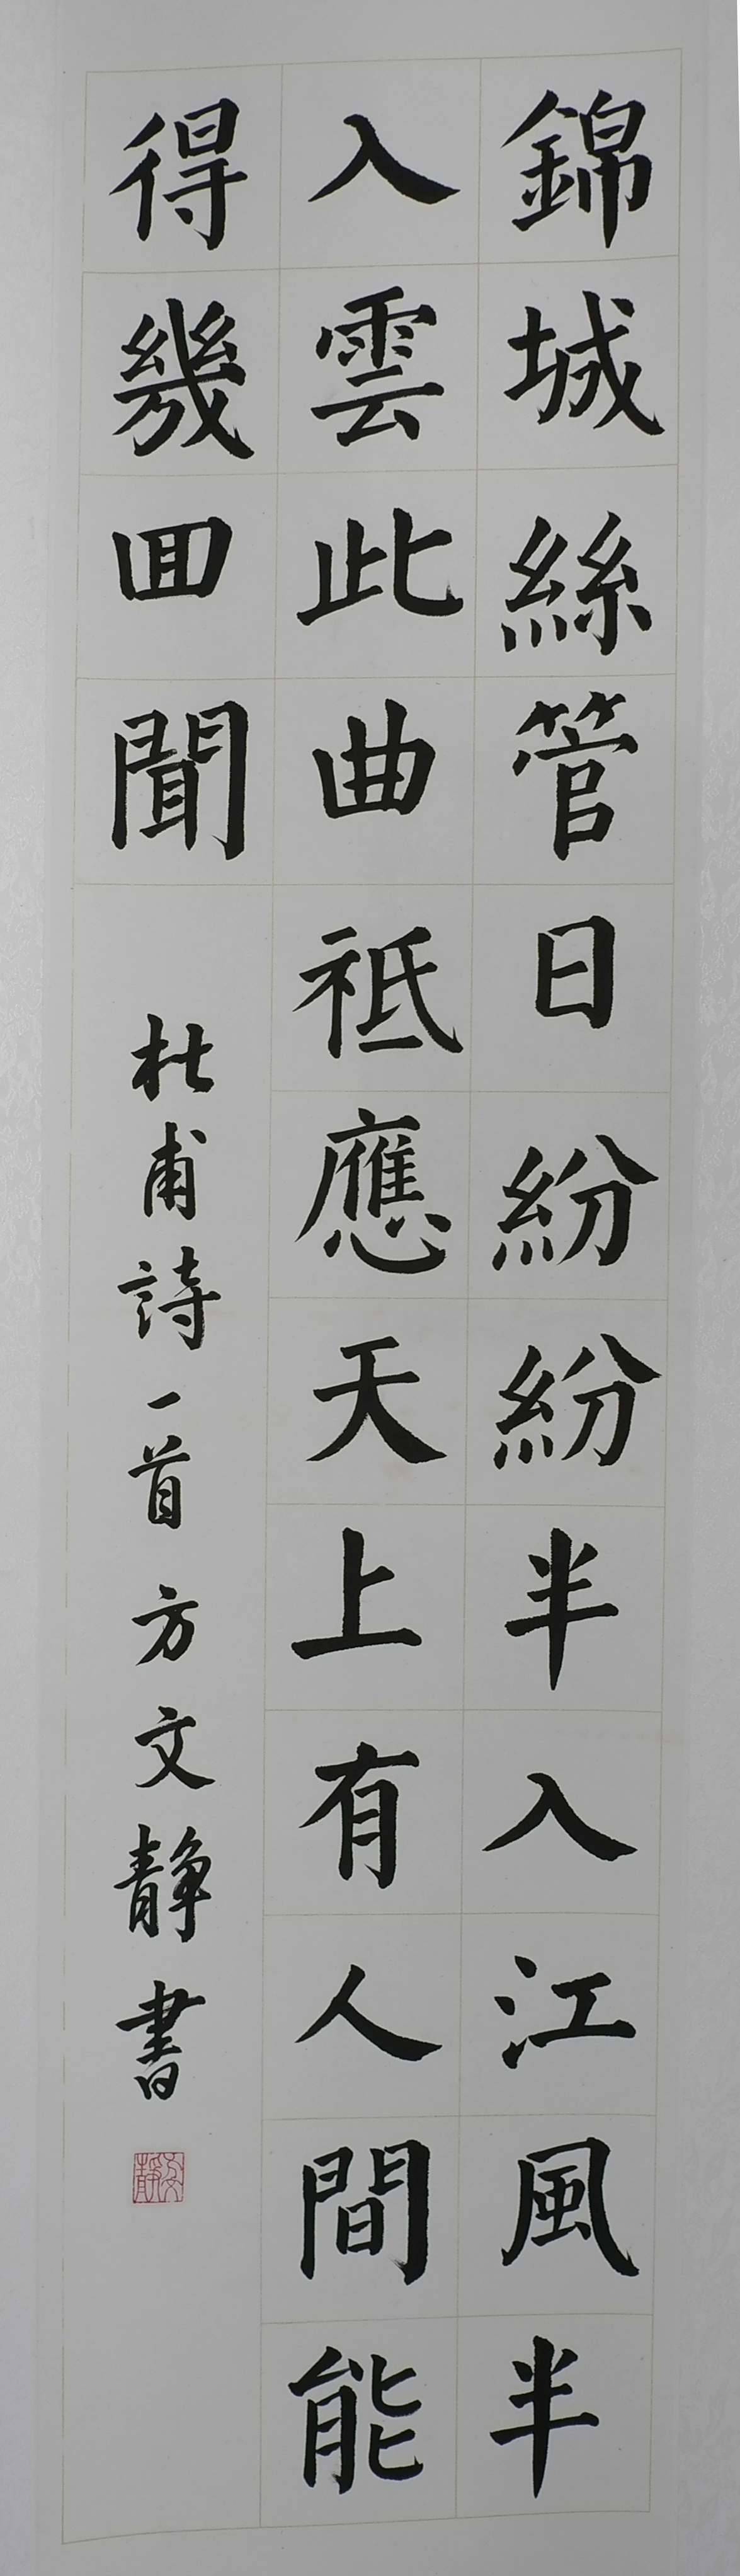 錦城絲管日紛紛半入江風半
入雲此曲祗應天上有人間能
得幾回聞
杜甫詩一首方文靜書